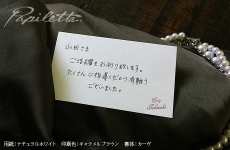 Papiletta
山田さま
ご活躍をお祈り致します。
たくさんご指導くださり有難う
ございました。
用紙：ナチュラルホワイト 印刷色：キャラメルブラウン 書体：カーヴ